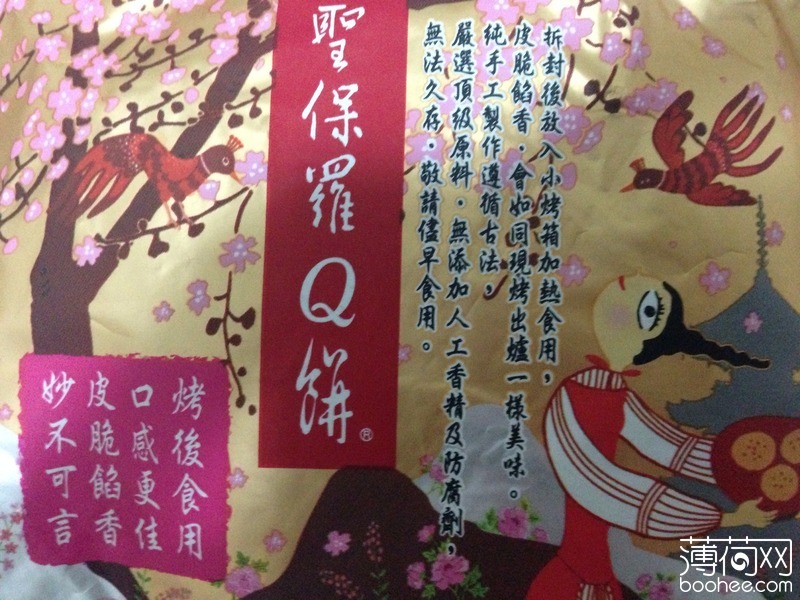 聖保羅Q餅®
拆封後放入小烤箱加熱食用，
皮脆餡香．會如同現烤出爐一樣美味。
純手工製作遵循古法，
嚴選頂級原料．無添加人工香精及防腐劑，
無法久存．敬請儘早食用。
烤後食用
口感更佳
皮脆餡香
妙不可言
薄荷网
boohee.com